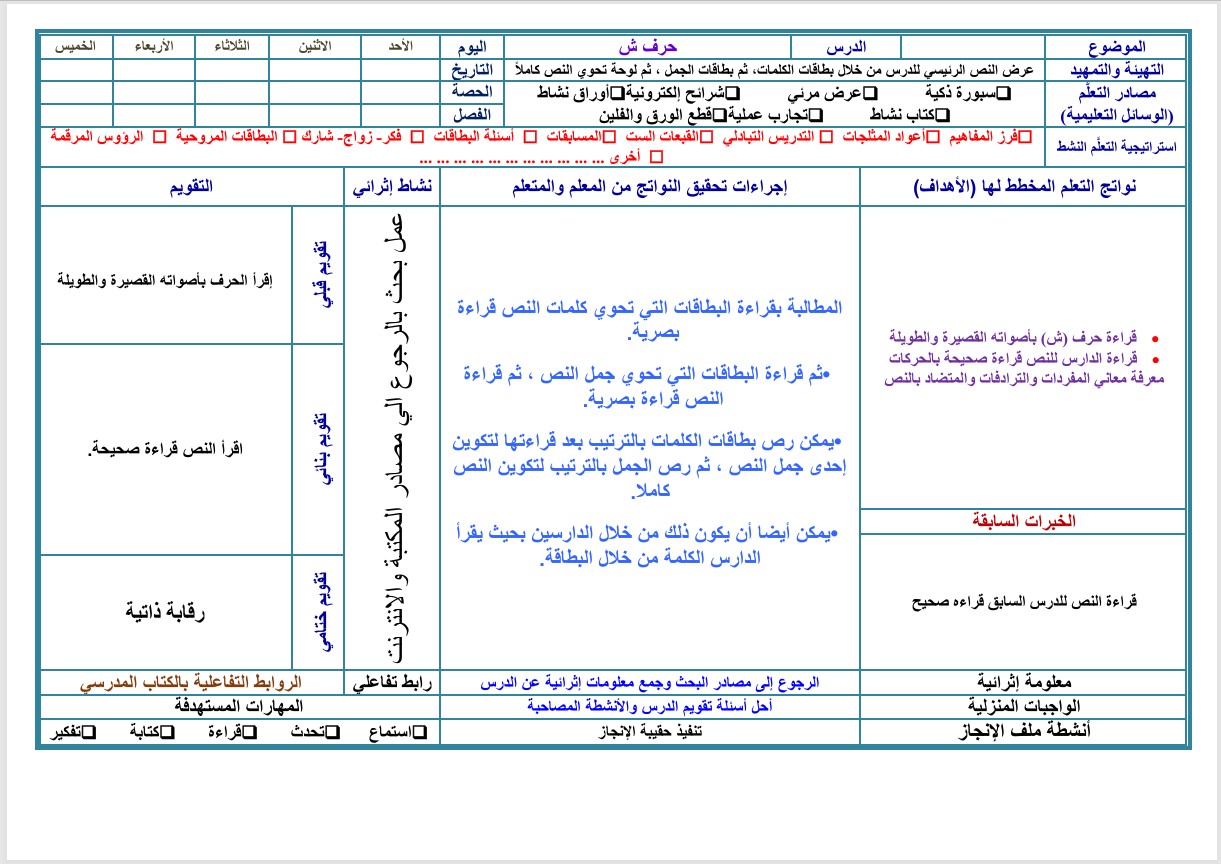 الموضوع الدرس حرف ش اليوم الأحد الاثنين الثلاثاء الأربعاء الخميس
التهيئة والتمهيد عرض النص الرئيسي للدرس من خلال بطاقات الكلمات، ثم بطاقات الجمل ، ثم لوحة تحوي النص كاملاً التاريخ
مصادر التعلّم ❑سبورة ذكية ❑عرض مرئي ❑شرائح إلكترونية ❑أوراق نشاط الحصة
(الوسائل التعليمية) ❑كتاب نشاط ❑تجارب عملية ❑قطع الورق والفلين الفصل
استراتيجية التعلّم النشط □فرز المفاهيم □أعواد المثلجات □ التدريس التبادلي □القبعات الست □المسابقات □ أسئلة البطاقات □ فكر- زواج- شارك □ البطاقات المروحية □ الرؤوس المرقمة
□ أخرى ... ... ... ... ... ... ... ... ... ... ...
نواتج التعلم المخطط لها (الأهداف) إجراءات تحقيق النواتج من المعلم والمتعلم نشاط إثرائي التقويم
• قراءة حرف (ش) بأصواته القصيرة والطويلة
• قراءة الدارس للنص قراءة صحيحة بالحركات
معرفة معاني المفردات والترادفات والمتضاد بالنص
الخبرات السابقة
قراءة النص للدرس السابق قراءه صحيح
المطالبة بقراءة البطاقات التي تحوي كلمات النص قراءة
بصرية.
•ثم قراءة البطاقات التي تحوي جمل النص ، ثم قراءة
النص قراءة بصرية.
•يمكن رص بطاقات الكلمات بالترتيب بعد قراءتها لتكوين
إحدى جمل النص ، ثم رص الجمل بالترتيب لتكوين النص
كاملا.
•يمكن أيضا أن يكون ذلك من خلال الدارسين بحيث يقرأ
الدارس الكلمة من خلال البطاقة.
عمل بحث بالرجوع الي مصادر المكتبة والانترنت
تقويم قبلي
إقرأ الحرف بأصواته القصيرة والطويلة
تقويم بنائي
اقرأ النص قراءة صحيحة.
تقويم ختامي
رقابة ذاتية
معلومة إثرائية الرجوع إلى مصادر البحث وجمع معلومات إثرائية عن الدرس رابط تفاعلي الروابط التفاعلية بالكتاب المدرسي
الواجبات المنزلية أحل أسئلة تقويم الدرس والأنشطة المصاحبة المهارات المستهدفة
أنشطة ملف الإنجاز تنفيذ حقيبة الإنجاز ❑استماع ❑تحدث ❑قراءة ❑كتابة ❑تفكير